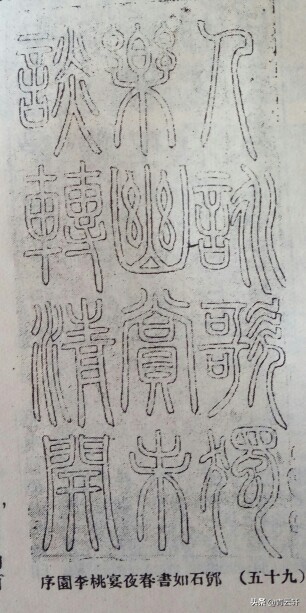 人詠歌獨
樂幽賞未
談轉清開
（九十五） 鄧石如書春夜宴桃李園序
头条